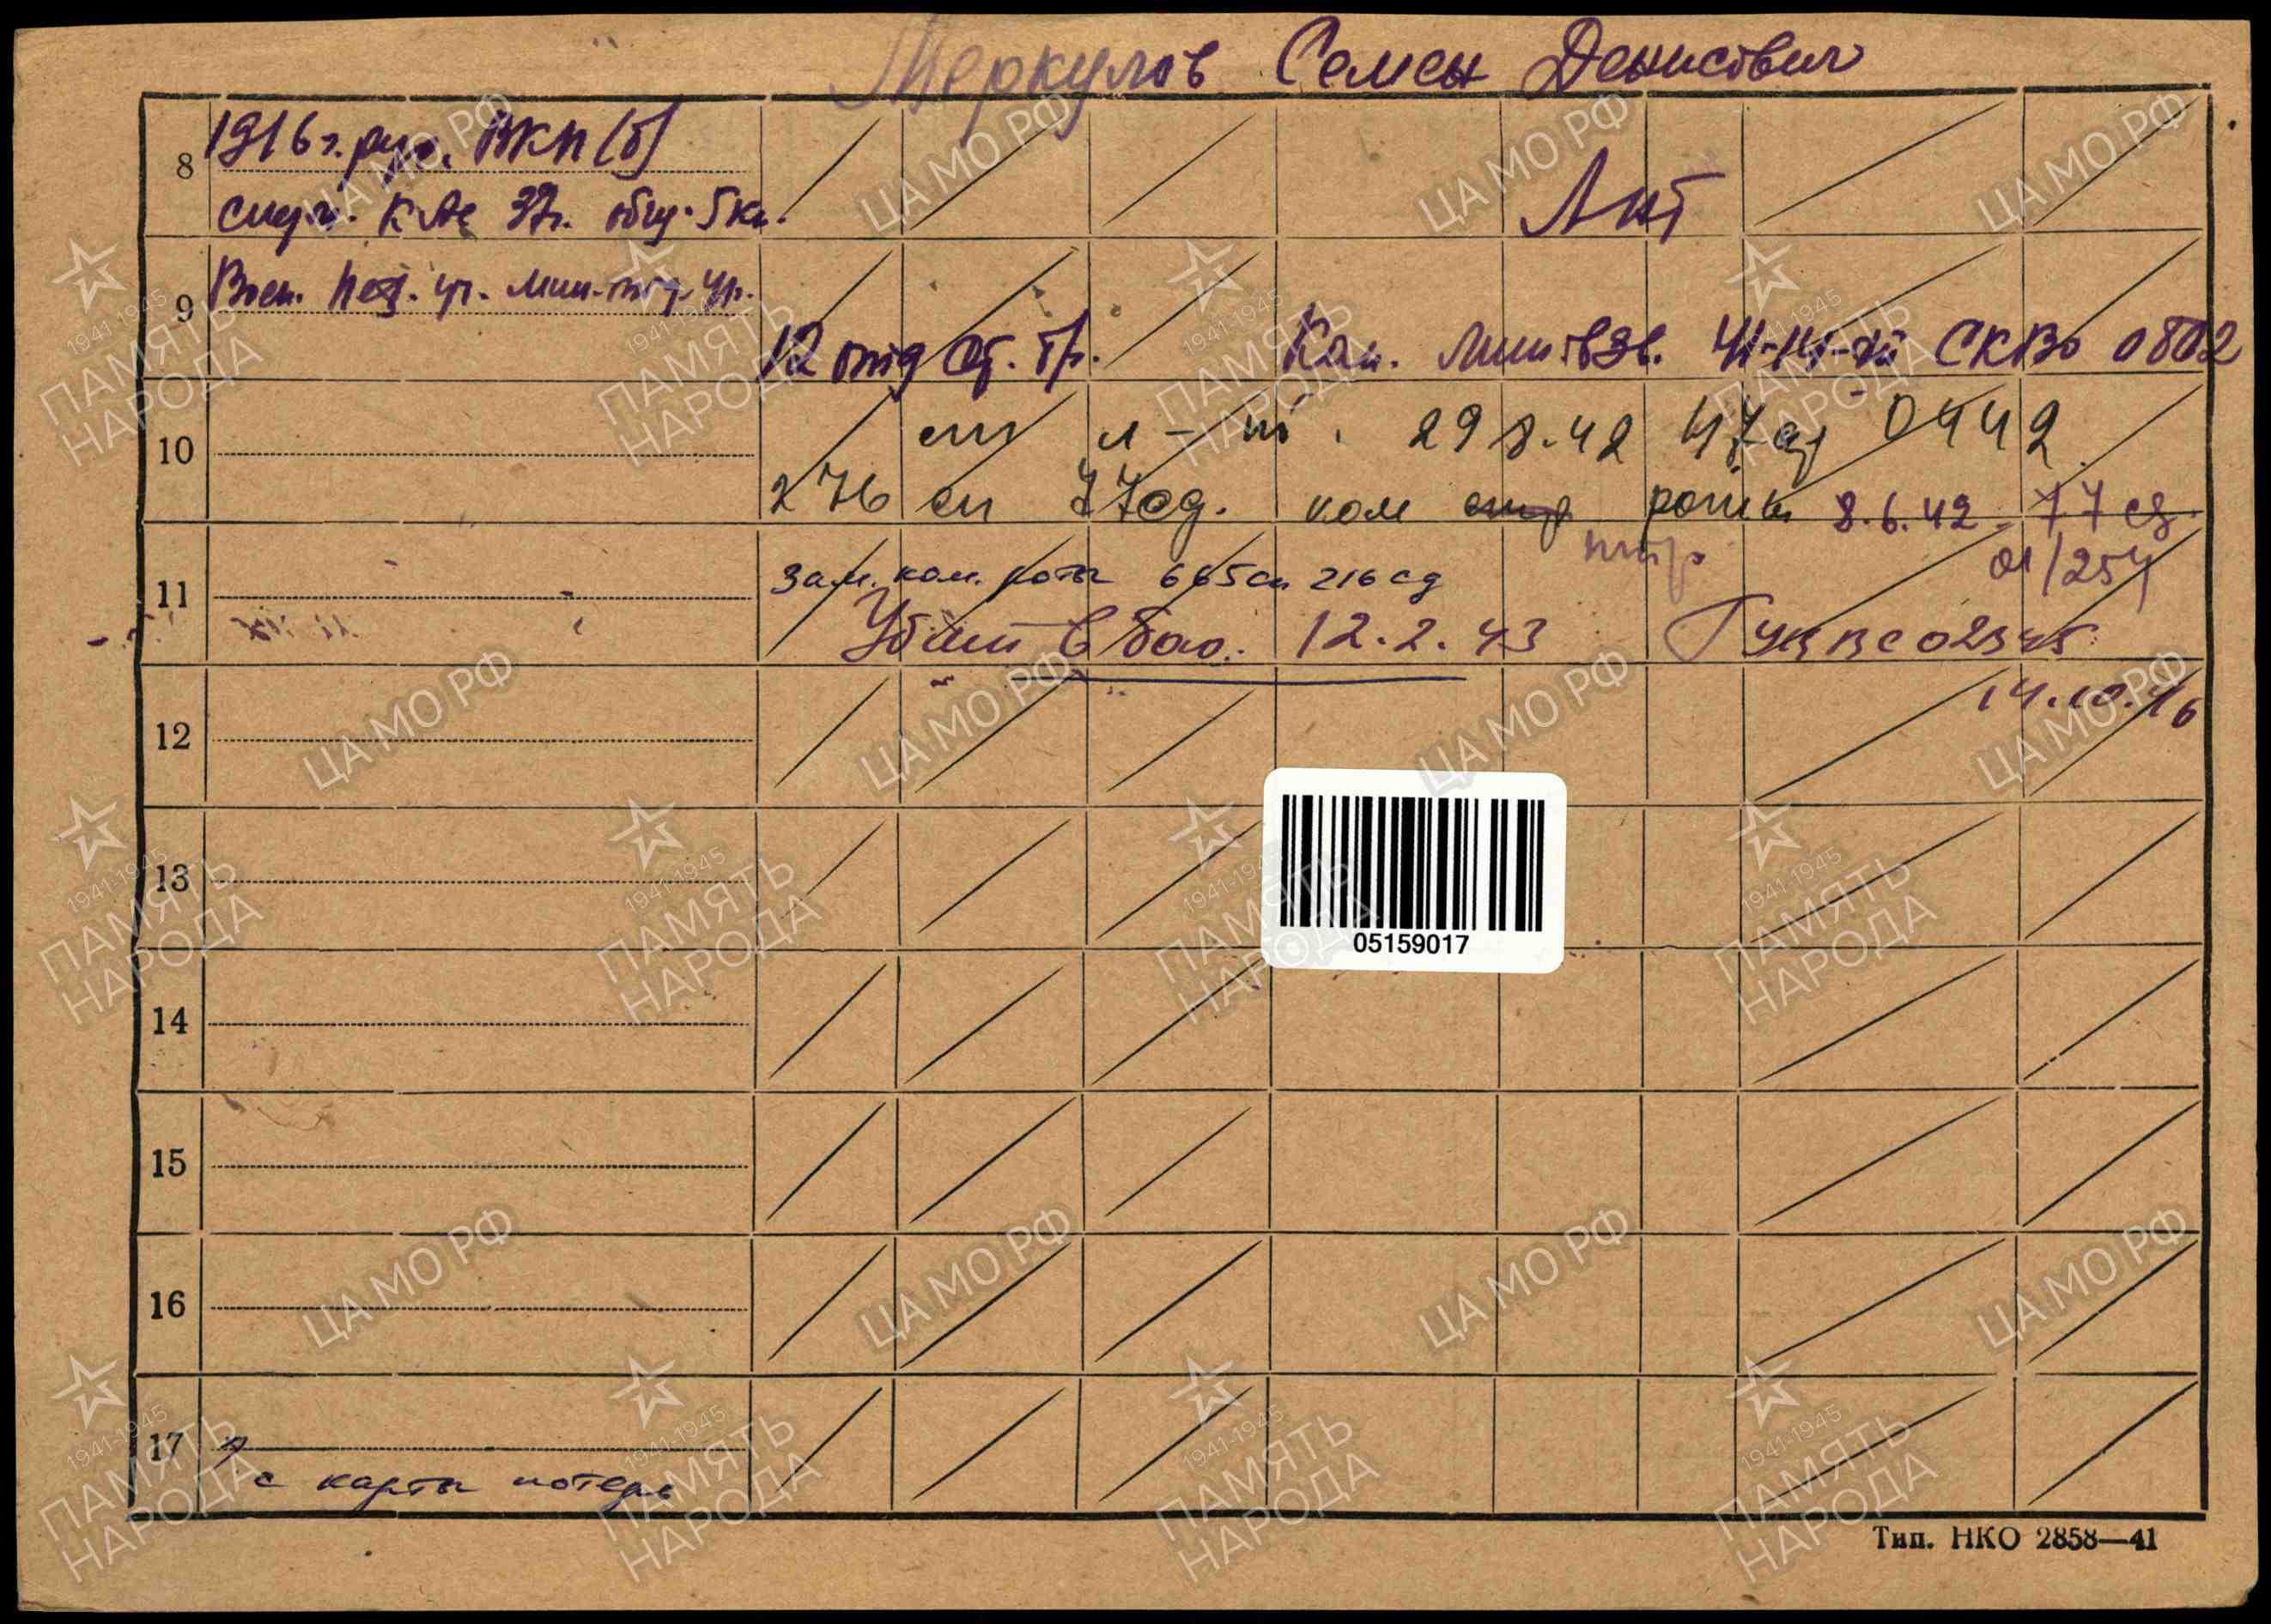 Меркулов Семен Денисович
8 1916 г. рож. ВКП(б)
служ. КАс 37г. общ. 5 кл.
Л-нт
9 Воен. Пех. уч. Мин.
12 отд ст. бр. Ком. мин. взв. СКВО 0802
10 ст л-т. 29 8.42 47 ад 0442
276 сп 77 сд. ком роты 8.6.42 77 сд.
птр
01/254
11 зам. ком. роты 665 сп 216 сд
Убит в бою. 12.2.43 ГУК ВС 02345
14.10.46
12
13
05159017
14
15
16
17
с карты потерь
Тип. НКО 2858—41
ЦА МО РФ
1941-1945
ПАМЯТЬ
НАРОДА